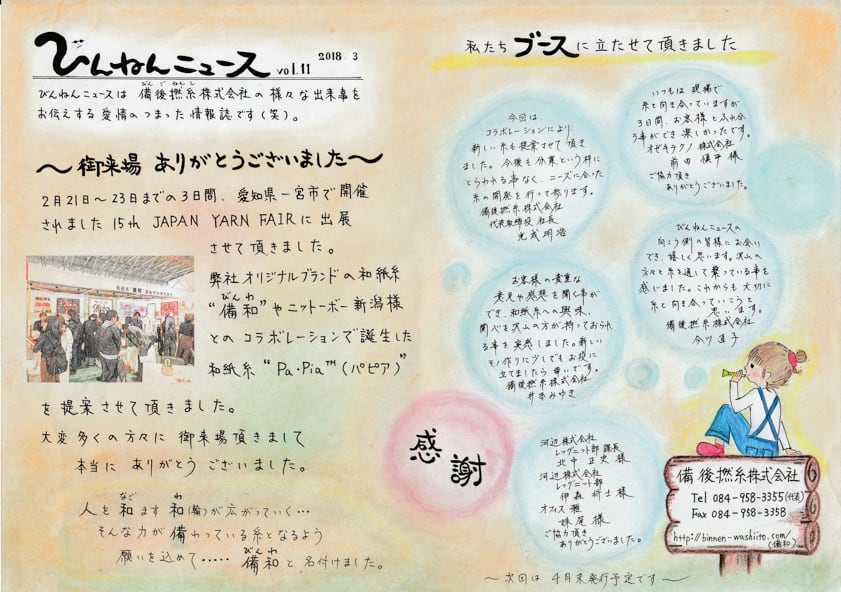 びんねんニュース vol.11 2018.3
びんねんニュースは 備後撚糸株式会社の 様々な出来事を
お伝えする 愛情のつまった 情報誌です(笑)。
～御来場 ありがとうございました～
2月21日～23日までの3日間、愛知県一宮市で開催
されました 15th JAPAN YARN FAIRに出展
させて頂きました。
弊社オリジナルブランドの和紙糸
“備和”やニットーボー新潟様
とのコラボレーションで誕生した
和紙糸“Pa・Pia™(パピア)”
を提案させて頂きました。
大変多くの方々に 御来場頂きまして
本当に ありがとう ございました。
人を和ます 和(輪)が広がっていく…
そんな力が備わっている糸となるよう
願いを込めて…… 備和と名付けました。
私たち ブースに立たせて頂きました
今回は、
コラボレーションにより、
新しい糸も提案させて頂き
ました。今後も分業という枠に
とらわれる事なく、ニーズに合った
糸の開発を行って参ります。
備後撚糸株式会社
代表取締役 社長
光成明浩
いつもは 現場で
糸と向き合っていますが
3日間、お客様とふれ合
う事ができ 楽しかったです。
オゼキテクノ 株式会社
前田 慎平 様
ご協力頂き
ありがとうございました。
お客様の貴重な
意見や感想を聞く事が
でき、和紙糸への興味、
関心を沢山の方が持っておられ
る事を実感しました。新しい
モノ作りに少しでもお役に
立てましたら幸いです。
備後撚糸株式会社
井本みゆき
びんねんニュースの
向こう側の皆様にお会い
でき、嬉しく思います。沢山の
方々と糸を通して繋っている事を
感じました。これからも大切に
糸と向き合っていこうと
思います。
備後撚糸株式会社
今川 直子
感謝
河辺株式会社
レッグニット部 課長
北中 正史 様
河辺株式会社
レッグニット部
伊森 将士 様
オフィス 雅
妹尾 様
ご協力頂き
ありがとうございました。
備後撚糸株式会社
Tel 084-958-3355(代表)
Fax 084-958-3358
http://binnen-washiito.com/
(備和)
～次回は 4月末発行予定です～